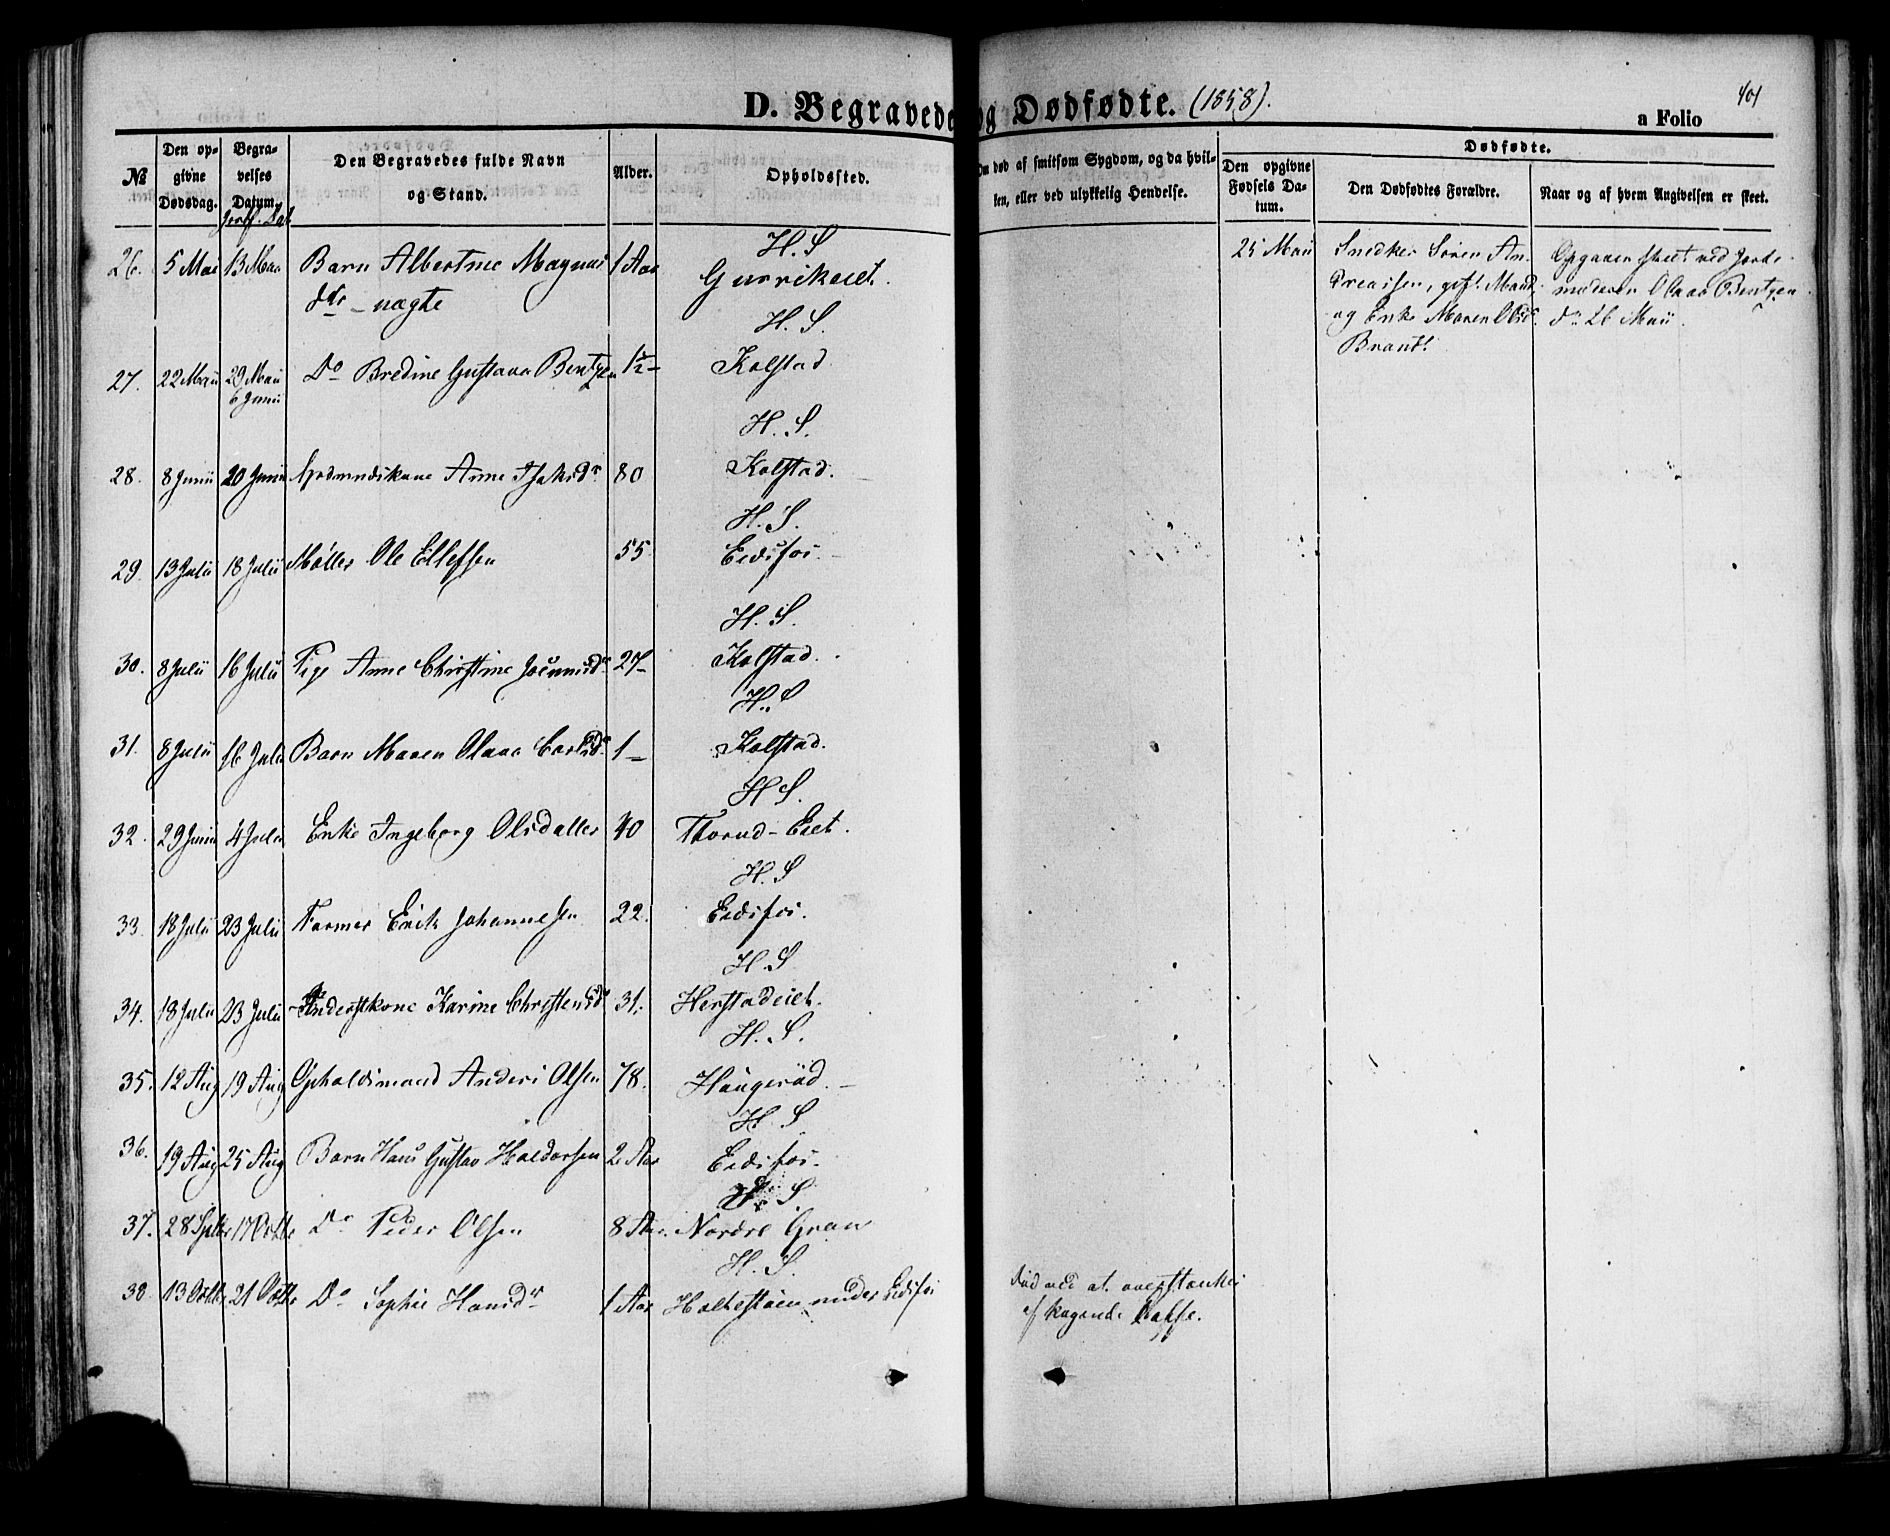 D. Begravede og Dødfødte. (1858).
401
a Folio
№
Den op-
givne
Dødsdag.
Begra-
velses
Datum.
Jordf. Dat
Den Begravedes fulde Navn
og Stand.
Alder.
Opholdssted.
Om død af smitsom Sygdom, og da hvil-
ken, eller ved ulykkelig Hendelse.
Dødfødte.
Den opgivne
Fødsels Da-
tum.
Den Dødfødtes Forældre.
Naar og af hvem Angivelsen er skeet.
H. S
26. 5 Mai 13 Mai Barn Albertine Magnus 1 Aar Gurrikeiet.
dtr uægte
25 Maii Snedker Sören An-
dreassen, gift Mand,
og Enke Maren Olsdr
Brandt
Opgaven skeet ved Jorde-
moderen Olava Bentzen
d. 26 Maii.
H. S.
27. 22 Maii 29 Maii Do Bredine Gustava Bentzen 1½ Kolstad
6 Junii
H. S.
28. 8 Junii 20 Junii Anne 80 Kolstad.
H. S.
29. 13 Julii 18 Julii Møller Ole Ellefsen 55 Eidsfos.
H. S.
30. 8 Julii 16 Julii Pige Anne Christine 27 Kolstad.
H. S
31. 8 Julii 16 Julii Barn Maren Olava Carlsdr 1 Kolstad.
H S.
32. 29 Junii 4 Julii Enke Ingeborg Olsdatter 40 Thorud-Eiet.
H. S
33. 18 Julii 23 Julii Former Erik Johannesen 22. Eidsfos.
H. S
34. 18 Julii 23 Julii Inderstkone Karine Christensdr 31. Herstadeiet.
H. S.
35. 12 Aug 19 Aug Opholdsmand Anders Olsen 78. Haugeröd.
H. S
36. 19 Aug 25 Aug Barn Hans Gustav Haldorsen 2 Aar Eidsfos.
H. S
37. 28 Septbr 17 Octbr Do Peder Olsen 8 Aar. Nordre Gran
H. S.
38 13 Octbr 21 Octbr Do Sophie Hansdr 1 Aar Holtestuen under Eidsfos
Død ved at overstænkes
af kogende Kaffe.